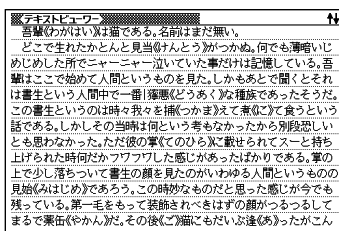 テキストビューワー
吾輩《わがはい》は猫である。名前はまだ無い。
どこで生れたかとんと見当《けんとう》がつかぬ。何でも薄暗いじ
めじめした所でニャーニャー泣いていた事だけは記憶している。吾
輩はここで始めて人間というものを見た。しかもあとで聞くとそれ
は書生という人間中で一番獰悪《どうあく》な種族であったそうだ。
この書生というのは時々我々を捕《つかま》えて煮《に》て食うという
話である。しかしその当時は何という考もなかったから別段恐しい
とも思わなかった。ただ彼の掌《てのひら》に載せられてスーと持ち
上げられた時何だかフワフワした感じがあったばかりである。掌の
上で少し落ちついて書生の顔を見たのがいわゆる人間というものの
見始《みはじめ》であろう。この時妙なものだと思った感じが今でも
残っている。第一毛をもって装飾されべきはずの顔がつるつるして
まるで薬缶《やかん》だ。その後《ご》猫にもだいぶ逢《あ》ったがこん